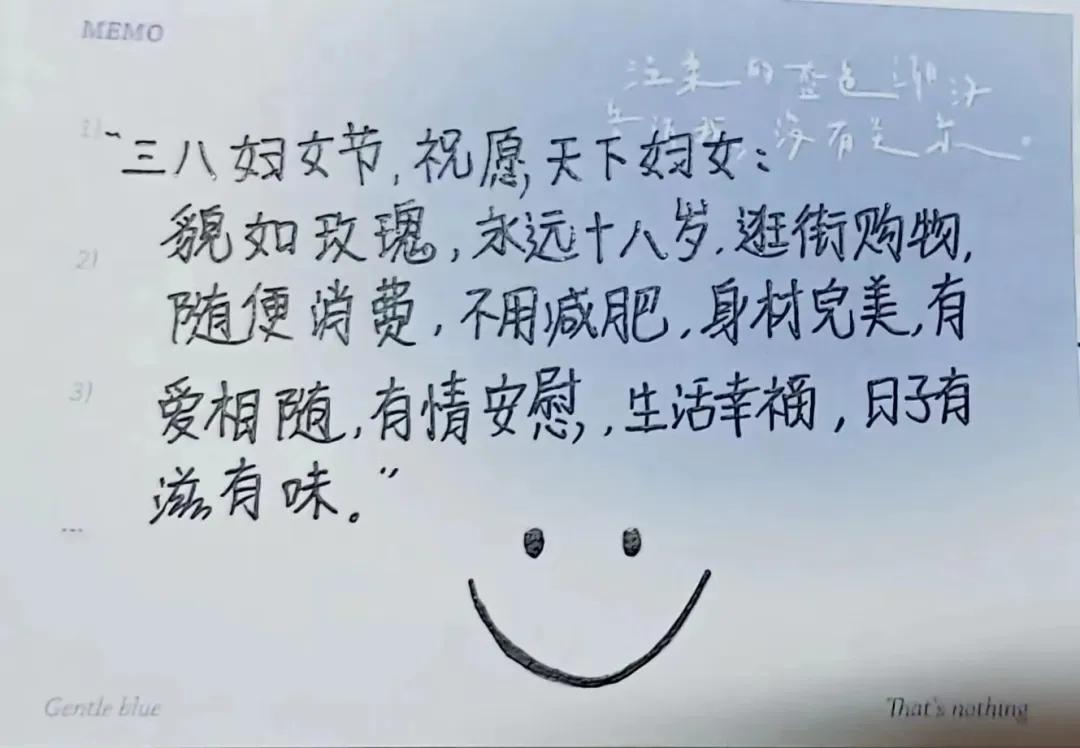 MEMO
注来的蓝色
没有
1) “三八妇女节,祝愿,天下妇女:
2) 貌如玫瑰,永远十八岁.逛街购物,
随便消费,不用减肥,身材完美,有
3) 爱相随,有情安慰,,生活幸福,日子有
滋有味。”
...
Gentle blue
That's nothing